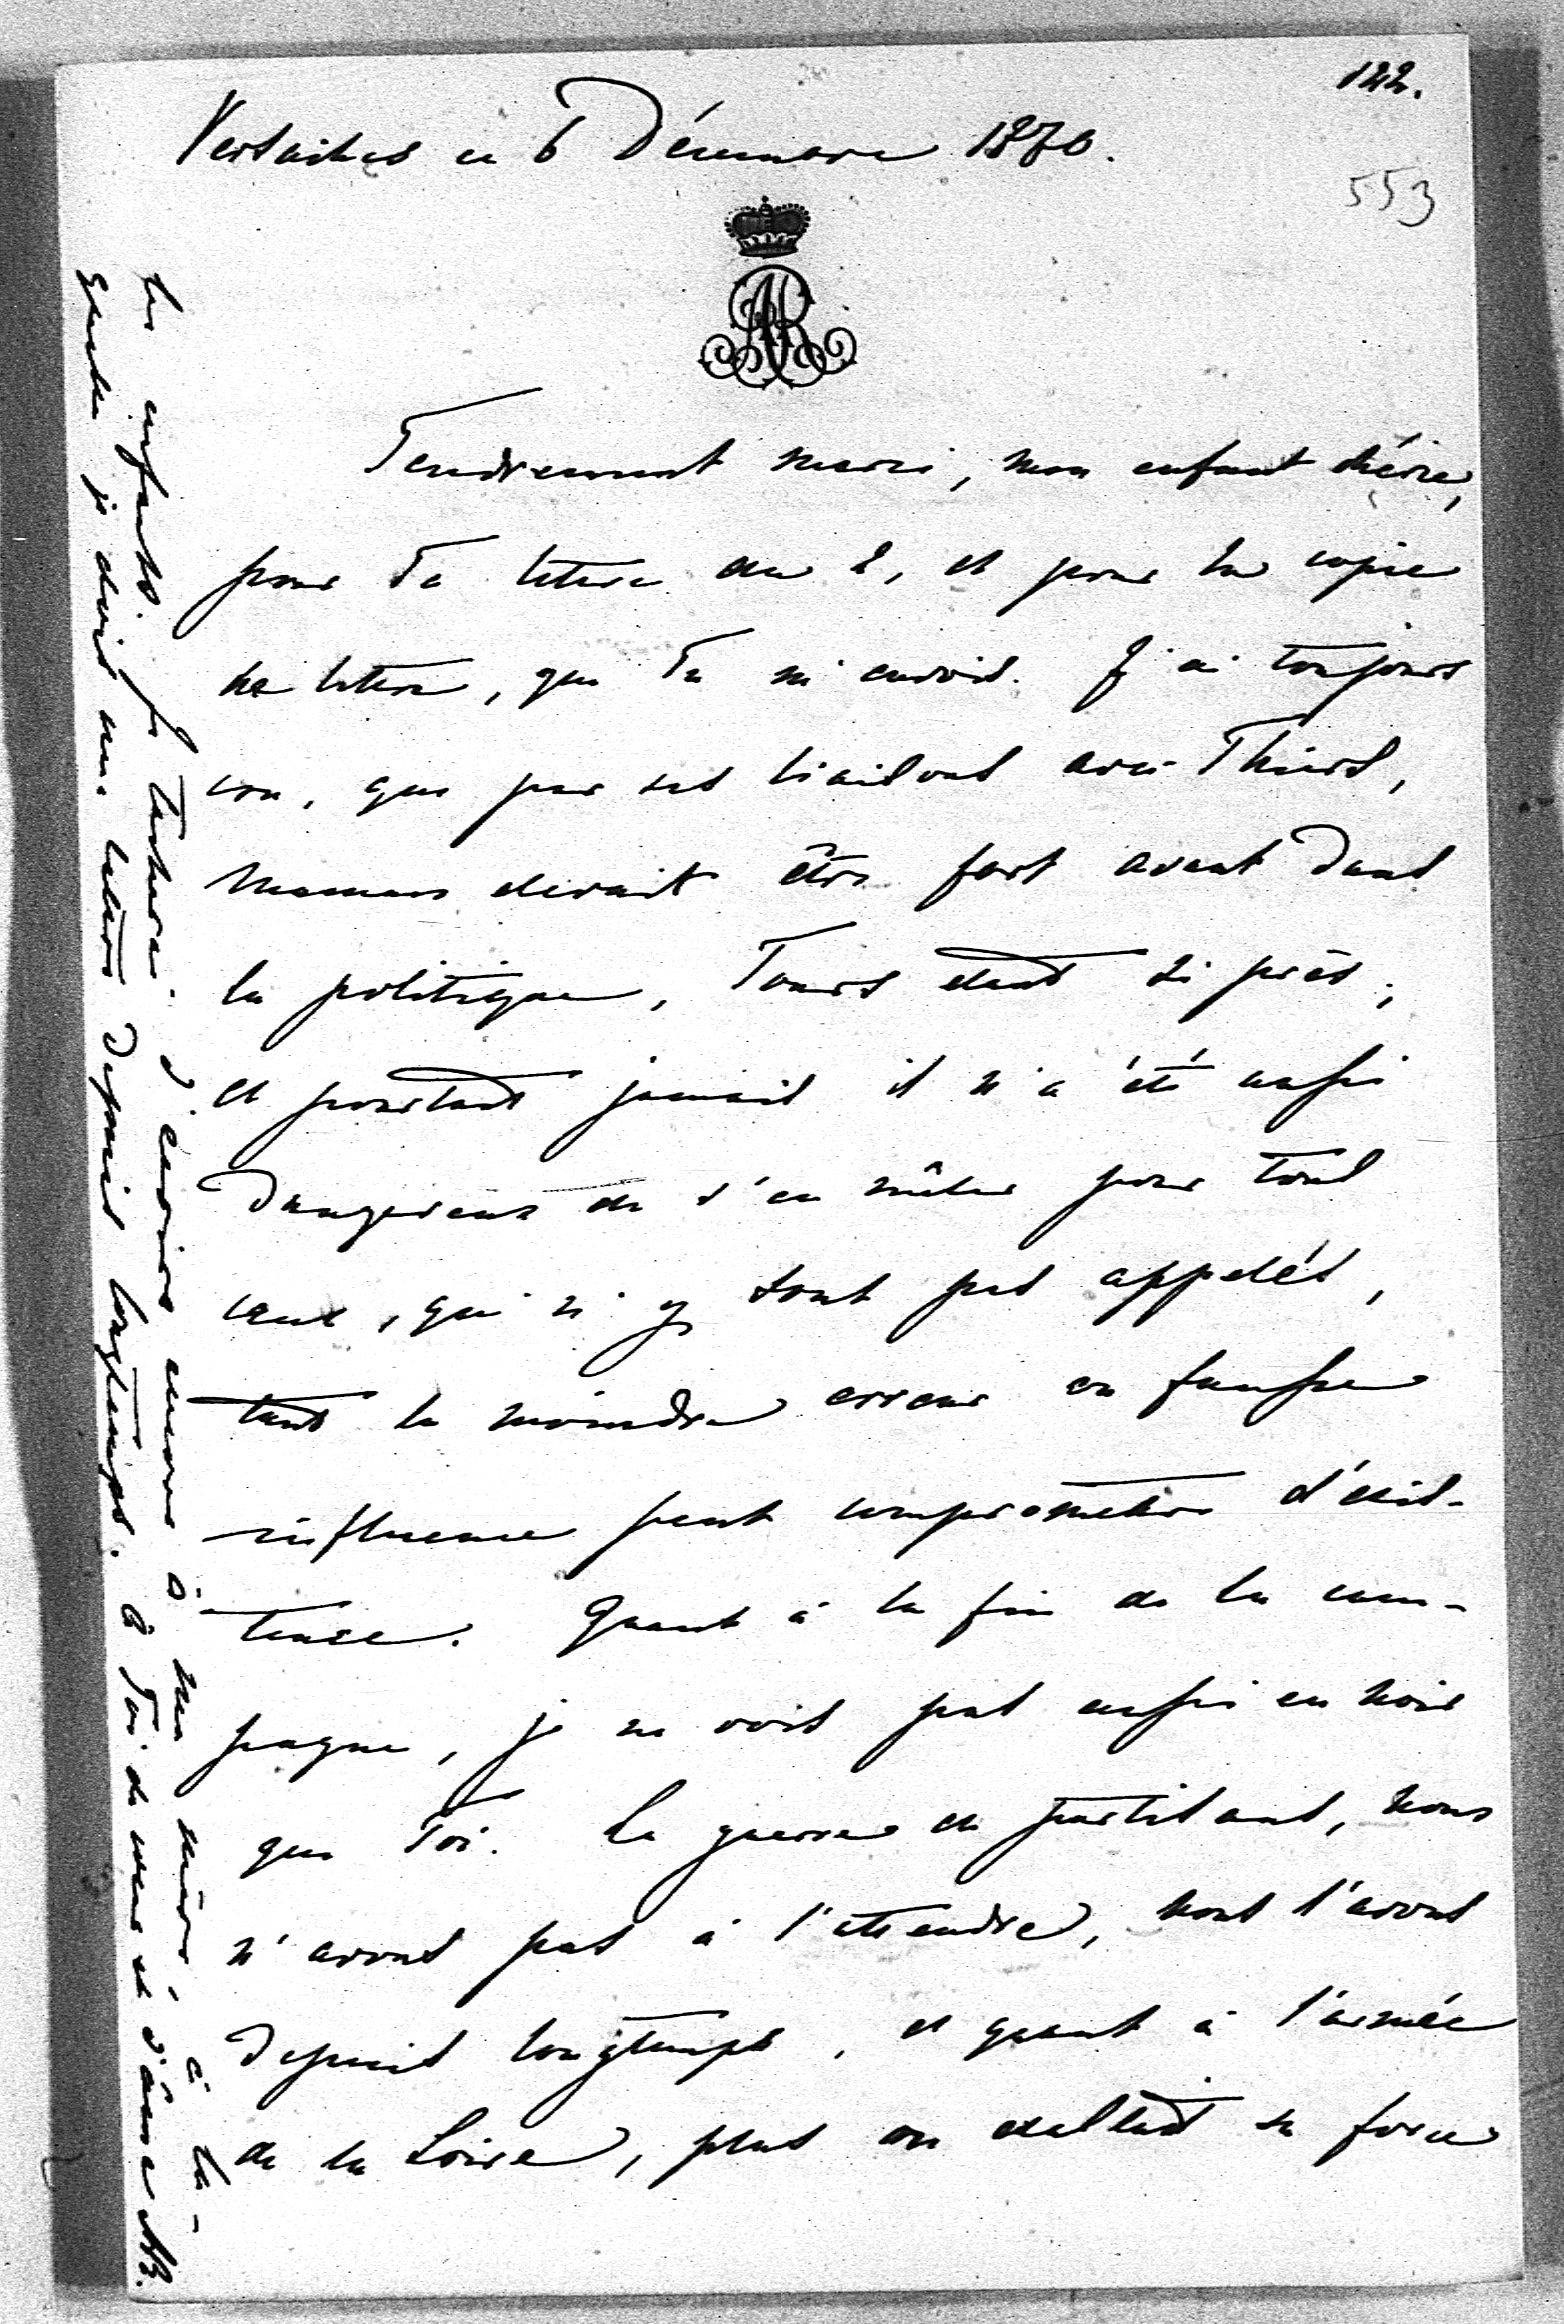 122.
Versailles ce 6 Décembre 1870.
553
AR
Tendrement merci, mon enfant chérie,
pour Ta lettre du 2, et pour la copie
de lettre, que Tu m'envois. J'ai toujours
cru, que par ses liaisons avec Thiers,
Maman devait être fort avant dans
la politique, Tours étant si près,
et pourtant jamais il n'a été aussi
dangereux de s'en mêler pour tous
ceux, qui n'y sont pas appelés,
tant la moindre erreur ou fausse
influence peut comprometre d'exis-
tence. Quant à la fin de la cam-
pagne, je ne vois pas aussi en noir
que Toi. La guerre de partisans, nous
n'avons pas à l'attendre, nous l'avons
depuis longtemps, et quant à l'armée
de la Loire, plus on exaltait sa force
les enfants. Je tacherai d'écrire encore à ma mère, à la-
quelle je dois une lettre depuis longtemps. à Toi de cœur et d'âme AR.